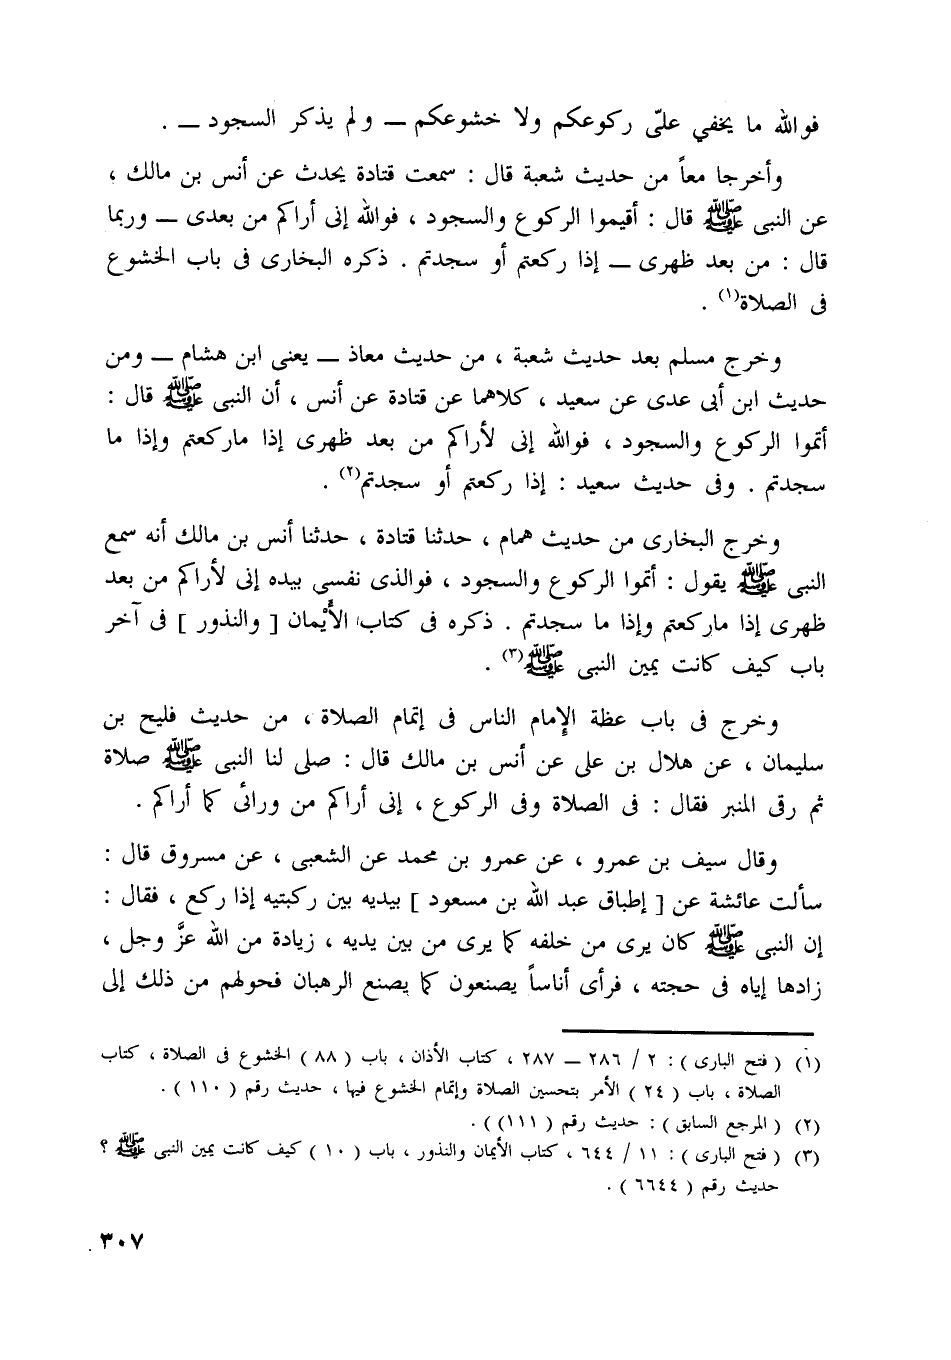 فوالله ما يخفي علىّ ركوعكم ولا خشوعكم ــ ولم يذكر السجود ــ .
وأخرجا معاً من حديث شعبة قال : سمعت قتادة يحدث عن أنس بن مالك ،
عن النبى ﷺ قال : أقيموا الركوع والسجود ، فوالله إنى أراكم من بعدى ــ وربما
قال : من بعد ظهرى ــ إذا ركعتم أو سجدتم . ذكره البخارى فى باب الخشوع
فى الصلاة(١) .
وخرج مسلم بعد حديث شعبة ، من حديث معاذ ــ يعنى ابن هشام ــ ومن
حديث ابن أبى عدى عن سعيد ، كلاهما عن قتادة عن أنس ، أن النبى ﷺ قال :
أتموا الركوع والسجود ، فوالله إنى لأراكم من بعد ظهرى إذا ماركعتم وإذا ما
سجدتم . وفى حديث سعيد : إذا ركعتم أو سجدتم(٢) .
وخرج البخارى من حديث همام ، حدثنا قتادة ، حدثنا أنس بن مالك أنه سمع
النبى ﷺ يقول : أتموا الركوع والسجود ، فوالذى نفسى بيده إنى لأراكم من بعد
ظهرى إذا ماركعتم وإذا ما سجدتم . ذكره فى كتاب الأيْمان [ والنذور ] فى آخر
باب كيف كانت يمين النبى ﷺ(٣) .
وخرج فى باب عظة الإمام الناس فى إتمام الصلاة ، من حديث فليح بن
سليمان ، عن هلال بن على عن أنس بن مالك قال : صلى لنا النبى ﷺ صلاة
ثم رقى المنبر فقال : فى الصلاة وفى الركوع ، إنى أراكم من ورائى كما أراكم .
وقال سيف بن عمرو ، عن عمرو بن محمد عن الشعبى ، عن مسروق قال :
سألت عائشة عن [ إطباق عبد الله بن مسعود ] بيديه بين ركبتيه إذا ركع ، فقال :
إن النبى ﷺ كان يرى من خلفه كما يرى من بين يديه ، زيادة من الله عزَّ وجل ،
زادها إياه فى حجته ، فرأى أناساً يصنعون كما يصنع الرهبان فحولهم من ذلك إلى
(١) ( فتح البارى ) : ٢ / ٢٨٦ ــ ٢٨٧ ، كتاب الأذان ، باب ( ٨٨ ) الخشوع فى الصلاة ، كتاب
الصلاة ، باب ( ٢٤ ) الأمر بتحسين الصلاة وإتمام الخشوع فيها ، حديث رقم ( ١١٠ ) .
(٢) ( المرجع السابق ) : حديث رقم ( ١١١) ) .
(٣) ( فتح البارى ) : ١١ / ٦٤٤ ، كتاب الأيمان والنذور ، باب ( ١٠ ) كيف كانت يمين النبى ﷺ ؟
حديث رقم ( ٦٦٤٤ ) .
٣٠٧